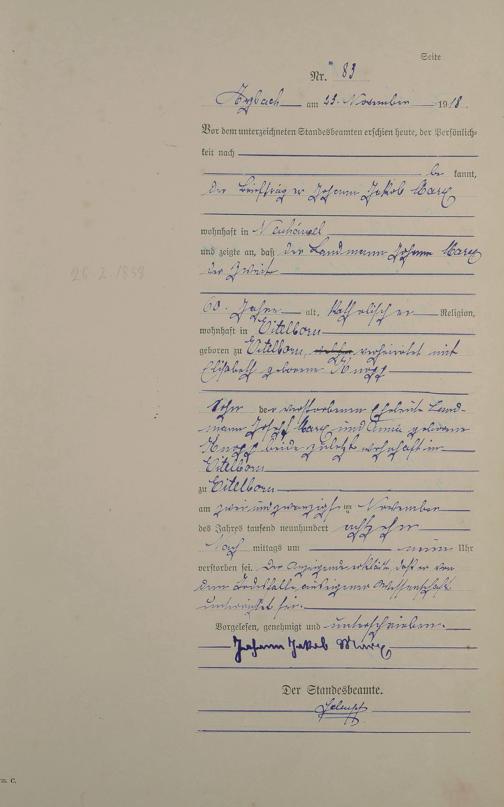 Seite
Nr. 83
Arzbach am 23. November 1918
Vor dem unterzeichneten Standesbeamten erschien heute, der Persönlich-
keit nach
be kannt,
der Johann Jakob Marx
wohnhaft in Neuhäusel
und zeigte an, daß der Landmann Johann Marx
der Zweite
60 Jahre alt, katholischer Religion,
wohnhaft in Eitelborn
geboren zu Eitelborn, verheiratet mit
Elisabeth geborene Knopp
Sohn der verstorbenen Eheleute Land-
mann Josef Marx und Anna geborene
Knopp beide zuletzt wohnhaft in
Eitelborn
zu Eitelborn
am zwei und zwanzigsten November
des Jahres tausend neunhundert achtzehn
Nach mittags um neun Uhr
verstorben sei. Der Anzeigende erklärte daß er von
dem Sterbefalle aus eigener Wissenschaft
unterrichtet sei.
Vorgelesen, genehmigt und unterschrieben.
Johann Jakob Marx
Der Standesbeamte.
26.2.1858
C.